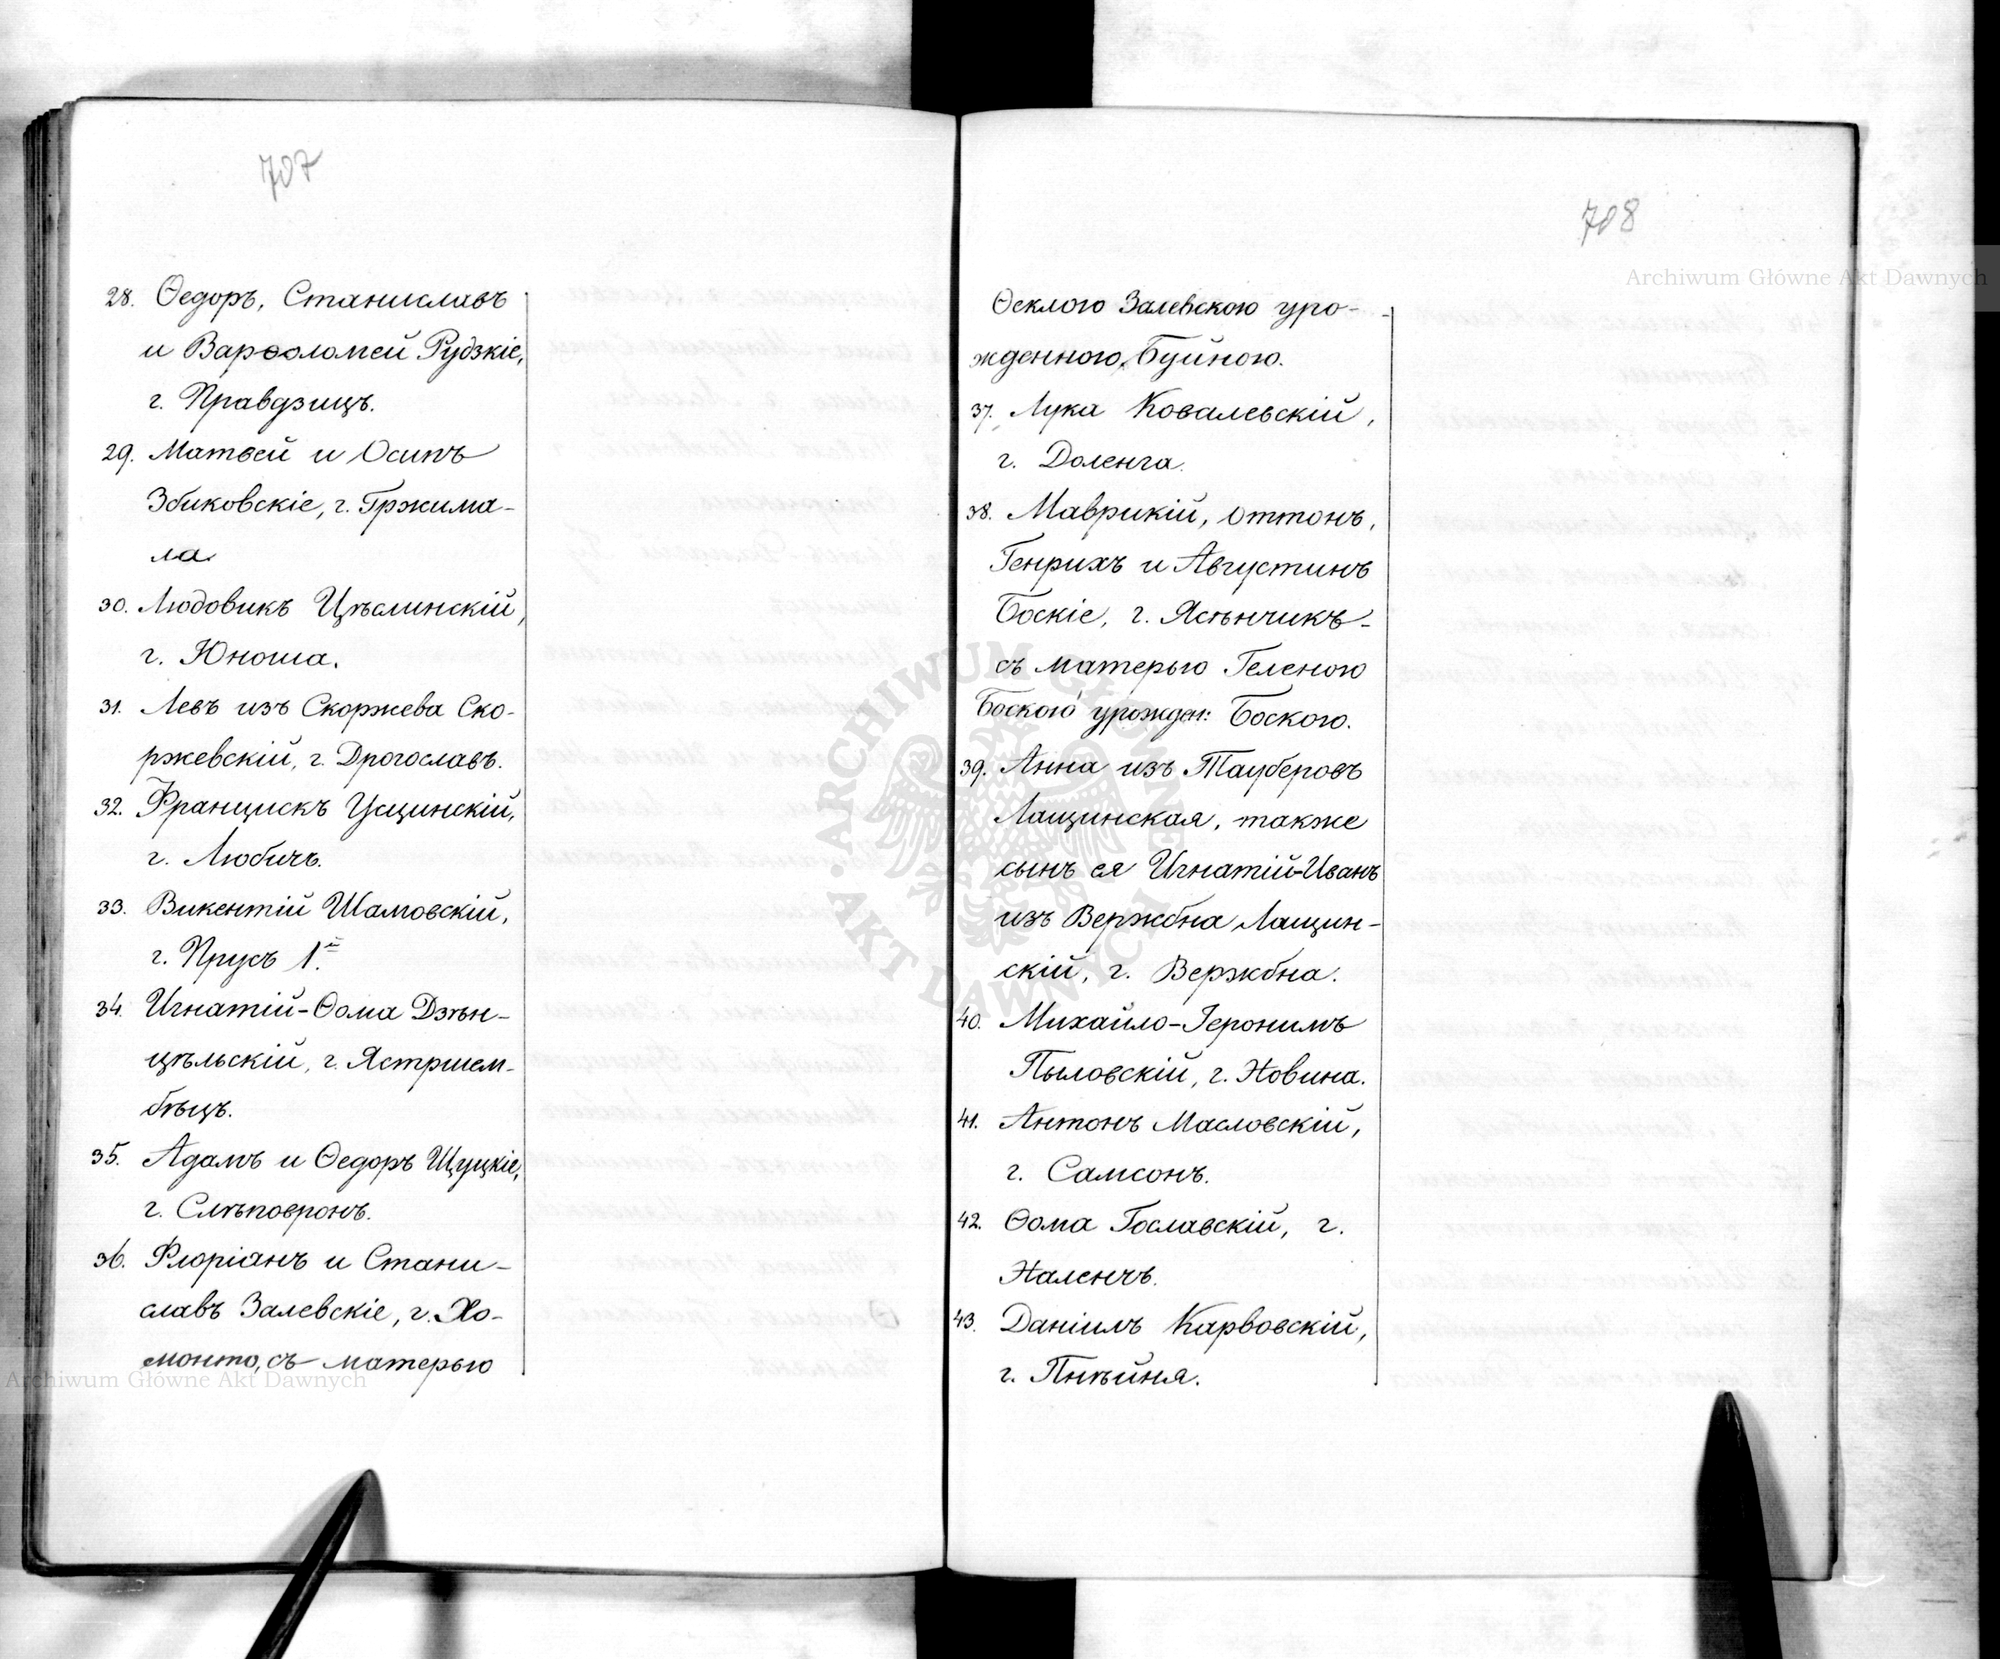 707
28. Ѳедоръ, Станиславъ
и Варѳоломей Рудзкіе,
г. Правдзицъ.
29. Матвей и Осипъ
Збиковскіе, г. Гржима-
ла.
30. Людовикъ Цѣслинскій,
г. Юноша.
31. Левъ изъ Скоржева Ско-
ржевскій, г. Дрогославъ.
32. Францискъ Усцинскій,
г. Любичъ.
33. Викентій Шамовскій,
г. Прусъ 1.й
34. Игнатій-Ѳома Дзѣн-
цѣльскій, г. Ястршем-
бѣцъ.
35. Адамъ и Ѳедоръ Щуцкіе,
г. Слѣповронъ.
36. Флоріанъ и Стани-
славъ Залевскіе, г. Хо-
монто, съ матерью
708
Ѳеклою Залевскою уро-
жденною Буйною.
37. Лука Ковалевскій,
г. Доленга.
38. Маврикій, Оттонъ,
Генрихъ и Августинъ
Боскіе, г. Ясѣнчикъ-
съ матерью Геленою
Боскою урожден: Боскою.
39. Анна изъ Тауберовъ
Лащинская, также
сынъ ея Игнатій-Иванъ
изъ Вержбна Лащин-
скій, г. Вержбна.
40. Михайло-Іеронимъ
Пыловскій, г. Новина.
41. Антонъ Масловскій,
г. Самсонъ.
42. Ѳома Гославскій, г.
Наленчъ.
43. Даніилъ Карвовскій,
г. Пнѣйня.
Archiwum Główne Akt Dawnych
Archiwum Główne Akt Dawnych
ARCHIWUM GŁÓWNE AKT DAWNYCH